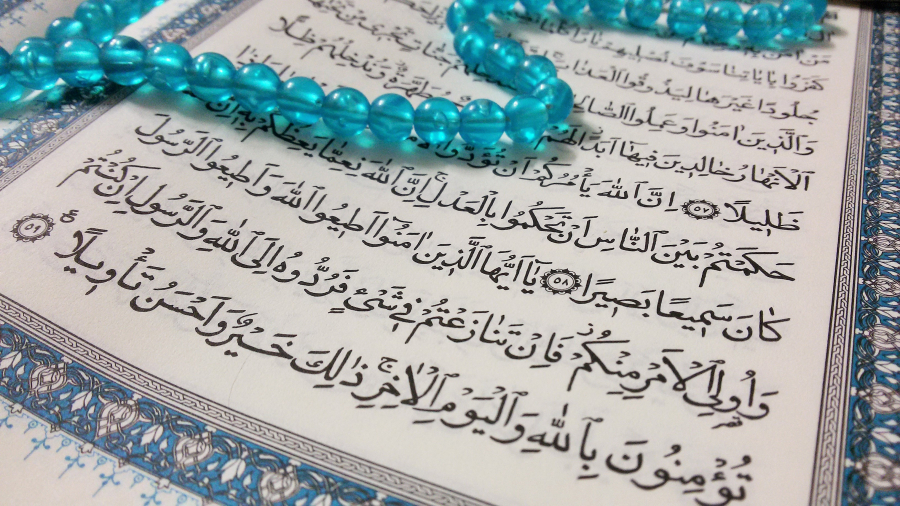 كَفَرُوا بِاٰيَاتِنَا سَوْفَ نُصْلِيهِمْ نَارًا
جُلُودًا غَيْرَهَا لِيَذُوقُوا الْعَذَابَ
وَالَّذِينَ اٰمَنُوا وَعَمِلُوا الصَّالِحَاتِ
الْاَنْهَارُ خَالِدِينَ فِيهَا اَبَدًا لَهُمْ مُطَهَّرَةٌ وَنُدْخِلُهُمْ ظِلًّا
ظَلِيلًا ﴿٥٧﴾ اِنَّ اللّٰهَ يَأْمُرُكُمْ اَنْ تُؤَدُّوا
حَكَمْتُمْ بَيْنَ النَّاسِ اَنْ تَحْكُمُوا بِالْعَدْلِ اِنَّ اللّٰهَ نِعِمَّا يَعِظُكُمْ بِهٖ اِنَّ
كَانَ سَمِيعًا بَصِيرًا ﴿٥٨﴾ يَٓا اَيُّهَا الَّذِينَ اٰمَنُٓوا اَطِيعُوا اللّٰهَ وَاَطِيعُوا الرَّسُولَ
وَاُولِى الْاَمْرِ مِنْكُمْ فَاِنْ تَنَازَعْتُمْ فِى شَىْءٍ فَرُدُّوهُ اِلَى اللّٰهِ وَالرَّسُولِ اِنْ كُنْتُمْ
تُؤْمِنُونَ بِاللّٰهِ وَالْيَوْمِ الْاٰخِرِ ذٰلِكَ خَيْرٌ وَاَحْسَنُ تَأْوِيلًا ﴿٥٩﴾